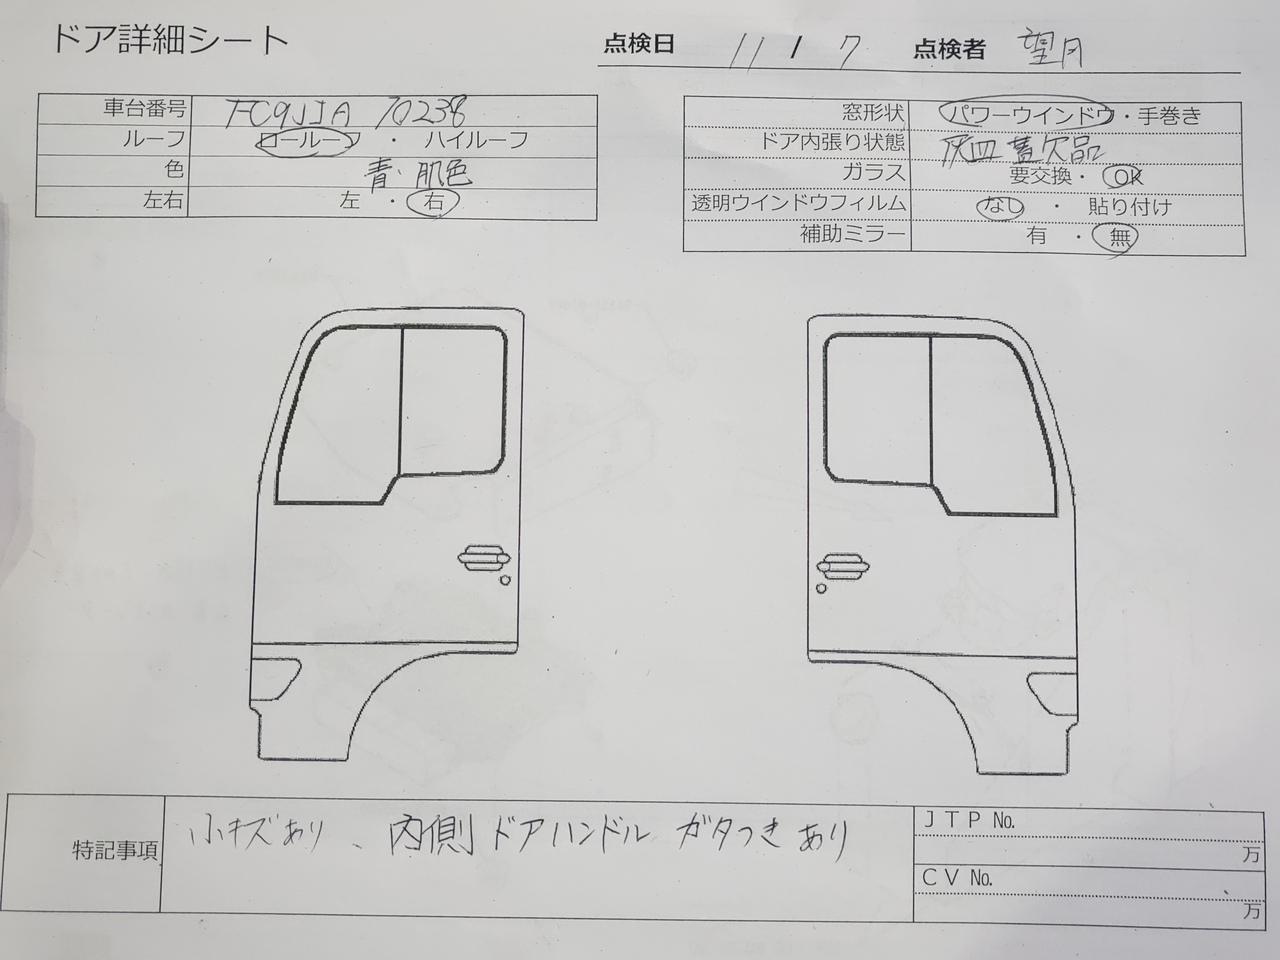 ドア詳細シート
点検日 11 / 7 点検者 望月
車台番号 FC9JJA 70238
ルーフ ロールーフ ・ ハイルーフ
色 青・肌色
左右 左 ・ 右
窓形状 パワーウインドウ・手巻き
ドア内張り状態 灰皿蓋欠品
ガラス 要交換・OK
透明ウインドウフィルム なし ・ 貼り付け
補助ミラー 有 ・ 無
特記事項 小キズあり、内側ドアハンドル ガタつきあり
JTP No.
万
CV No.
万